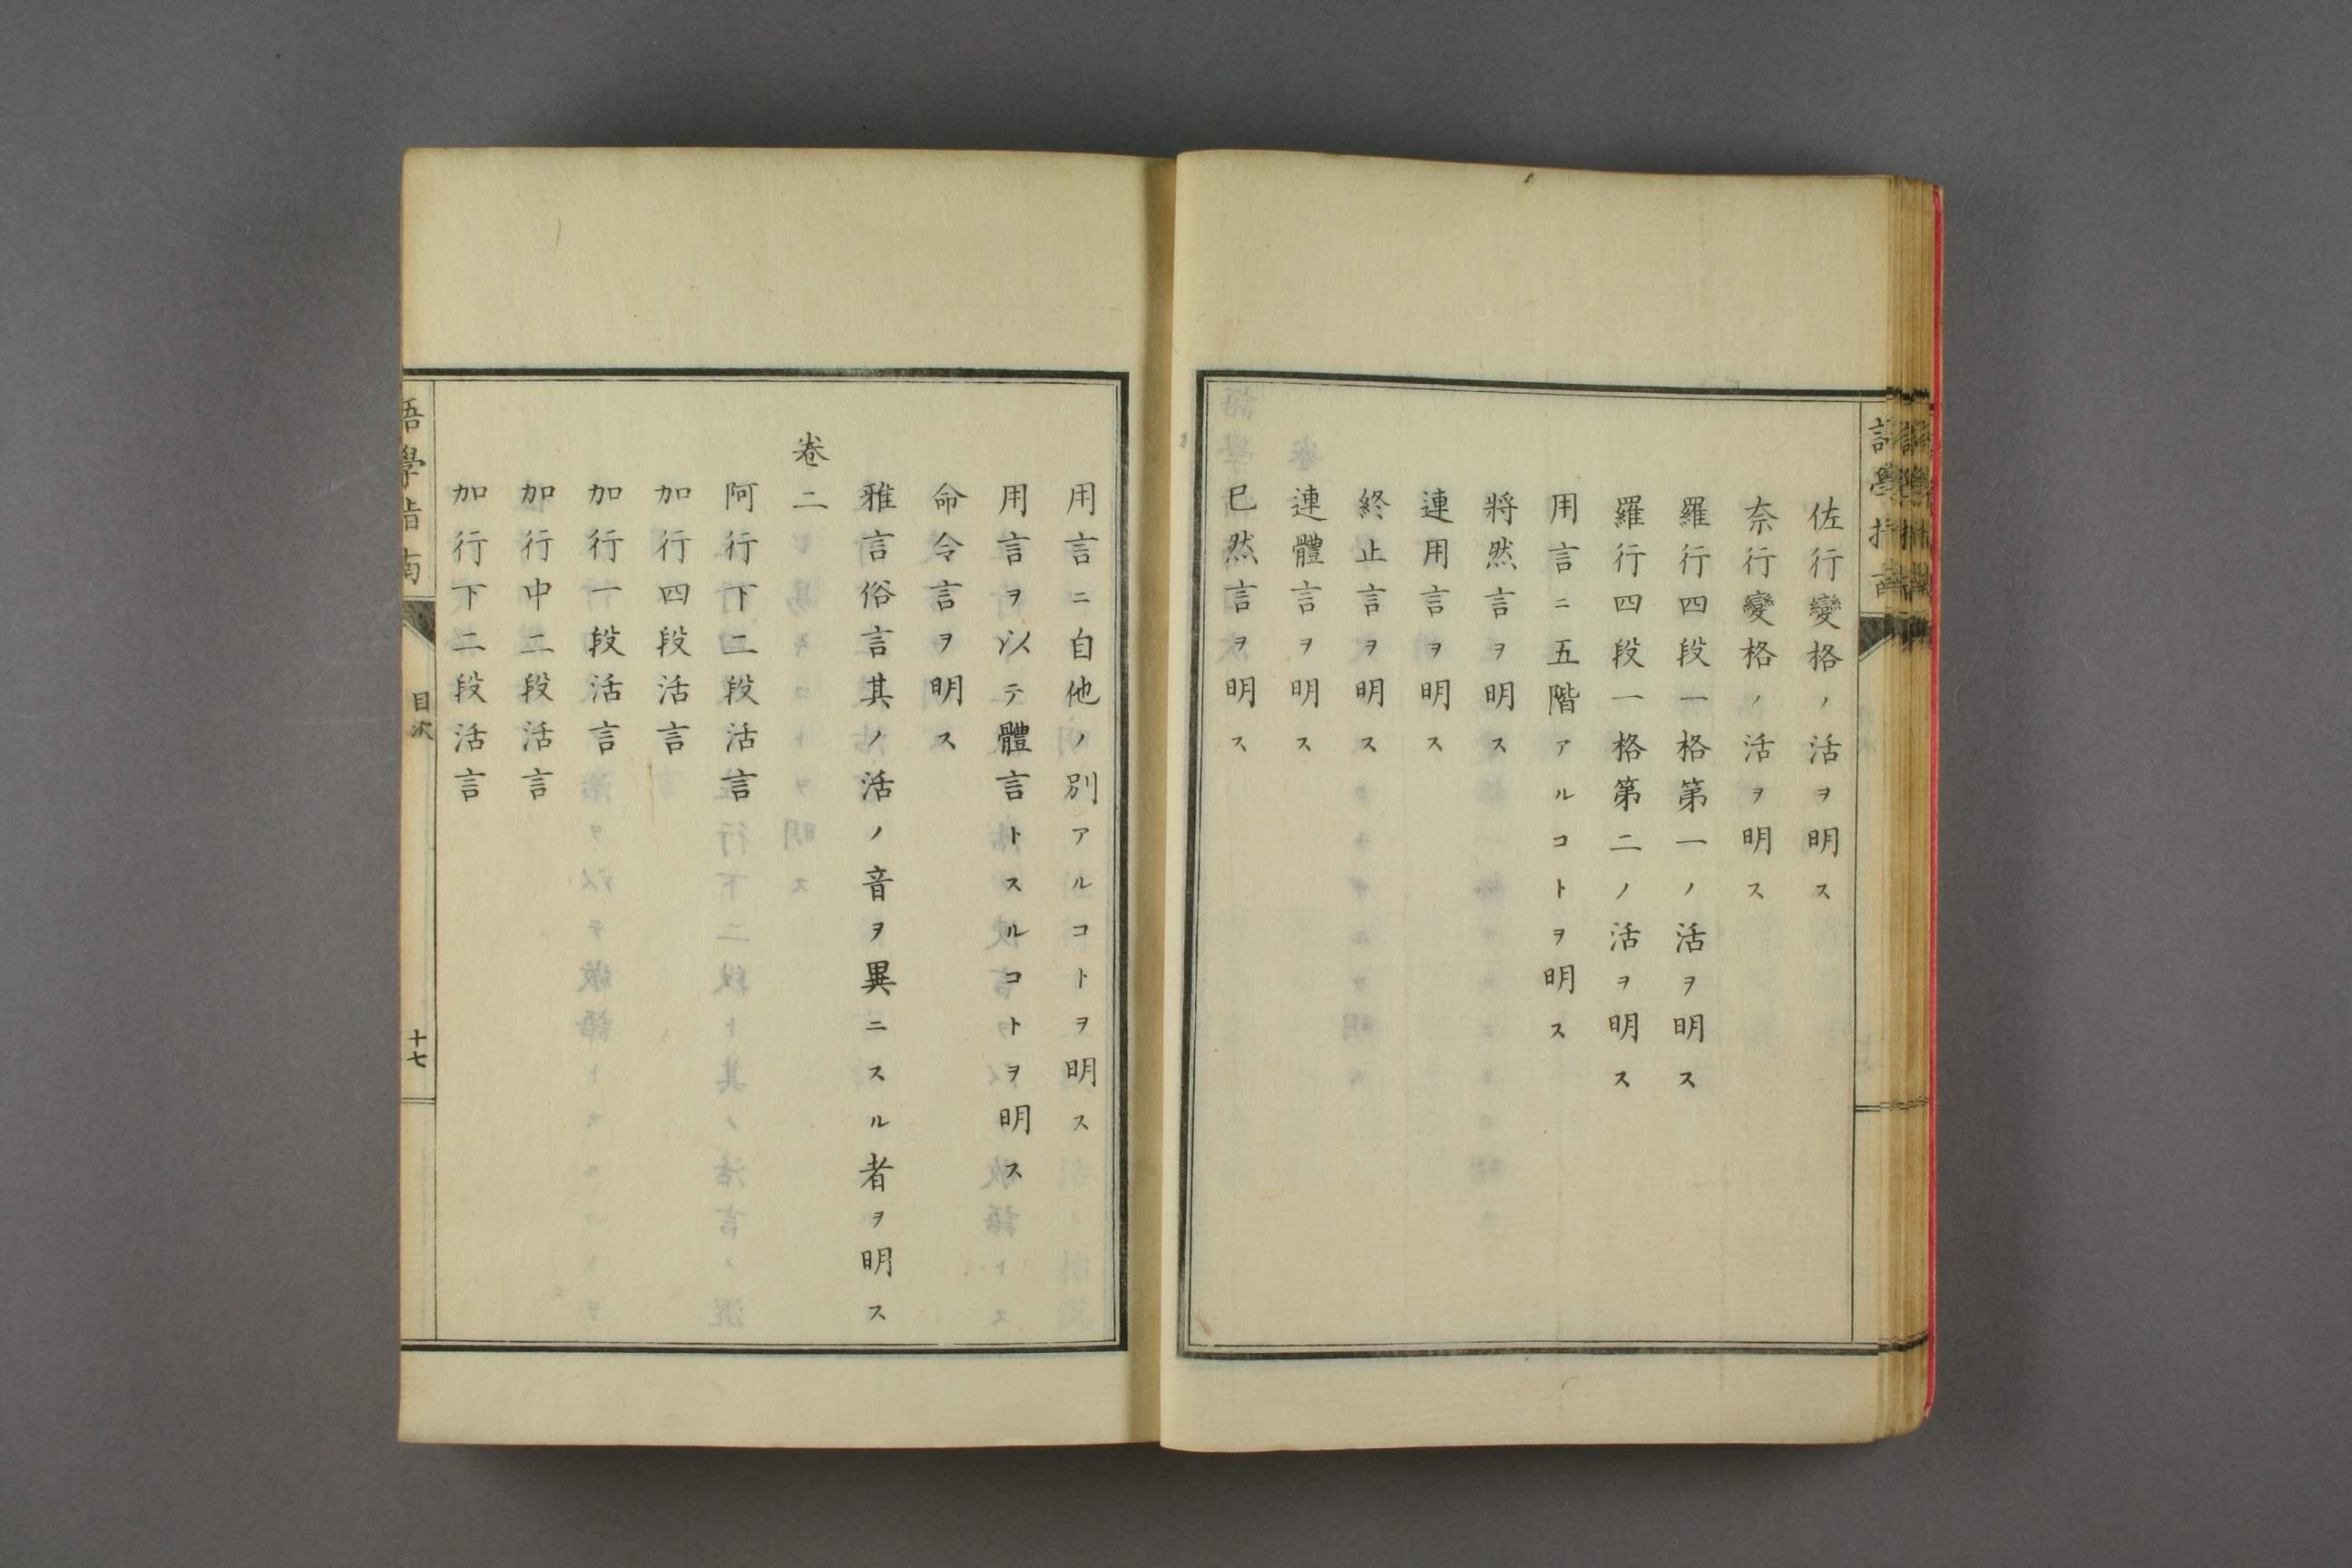 佐行變格ノ活ヲ明ス
奈行變格ノ活ヲ明ス
羅行四段一格第一ノ活ヲ明ス
羅行四段一格第二ノ活ヲ明ス
用言ニ五階アルコトヲ明ス
將然言ヲ明ス
連用言ヲ明ス
終止言ヲ明ス
連體言ヲ明ス
已然言ヲ明ス
用言ニ自他ノ別アルコトヲ明ス
用言ヲ以テ體言トスルコトヲ明ス
命令言ヲ明ス
雅言俗言其ノ活ノ音ヲ異ニスル者ヲ明ス
卷二
阿行下二段活言
加行四段活言
加行一段活言
加行中二段活言
加行下二段活言
語學指南
目次
十七